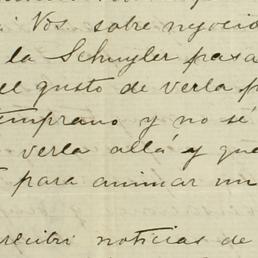 Vos. sobre negocio
la Schuyler pasa
el gusto de verla p
temprano y no sé
verla allá y que
para animar un
recibi noticias de